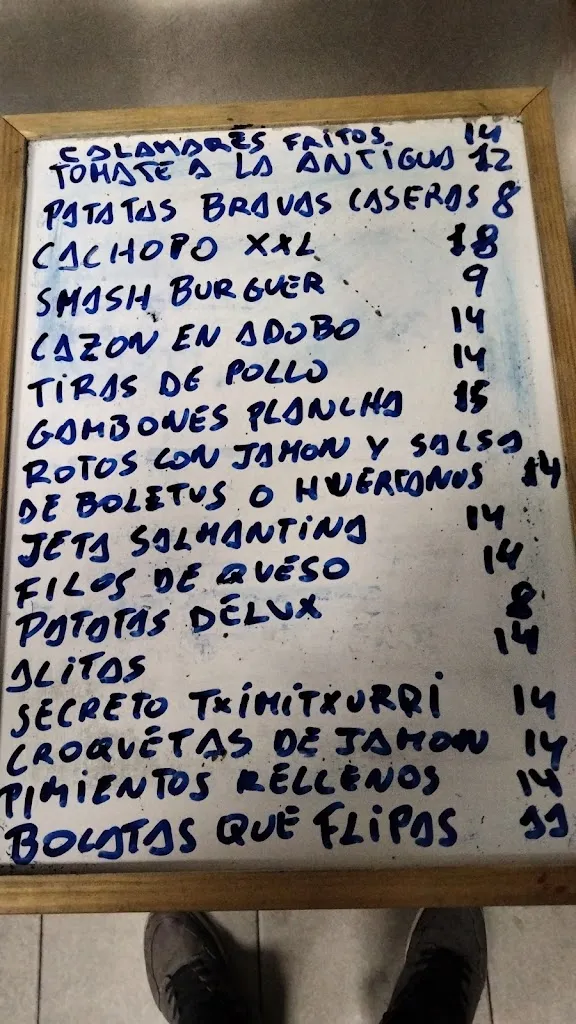 CALAMARES FRITOS 14
TOMATE A LA ANTIGUA 12
PATATAS BRAVAS CASERAS 8
CACHOPO XXL 18
SMASH BURGUER 9
CAZON EN ADOBO 14
TIRAS DE POLLO 14
GAMBONES PLANCHA 15
ROTOS CON JAMON Y SALSA
DE BOLETUS O HUERTANOS 14
JETA SALMANTINA 14
FILOS DE QUESO 14
PATATAS DELUX 8
ALITAS 14
SECRETO TXIMITXURRI 14
CROQUETAS DE JAMON 14
PIMIENTOS RELLENOS 14
BOCATAS QUE FLIPAS 11